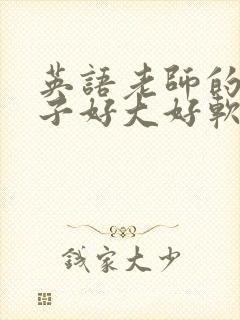 英語老師的
子好大好軟
錢家大少